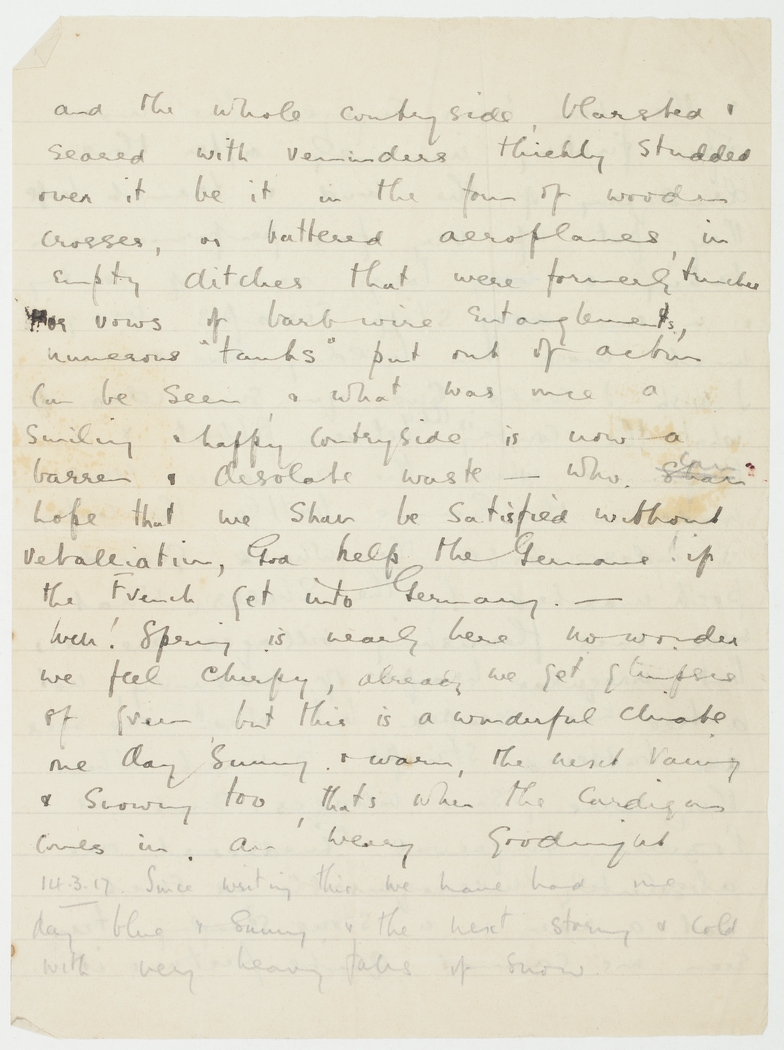 and the whole contryside, blarsted &
seared with reminders thickly studded
over it be it in the form of wooden
crosses, or battered aeroplanes, in
empty ditches that were formerly trenches
or rows of barb-wire entanglements,
numerous "tanks" put out of action
Can be seen, & what was once a
smiling & happy contryside is now a
barren & desolate waste — who can
hope that we shall be satisfied without
retalliation, God help the Germans! if
the French get into Germany. —
Well! Spring is nearly here no wonder
we feel chirpy, already we get glimpses
of green but this is a wonderful climate
one day sunny & warm, the next raining
& snowing too, that's when the Cardigan
comes in. am weary Goodnight
14.3.17. Since writing this we have had one
day blue & sunny & the next stormy & cold
with very heavy falls of snow.